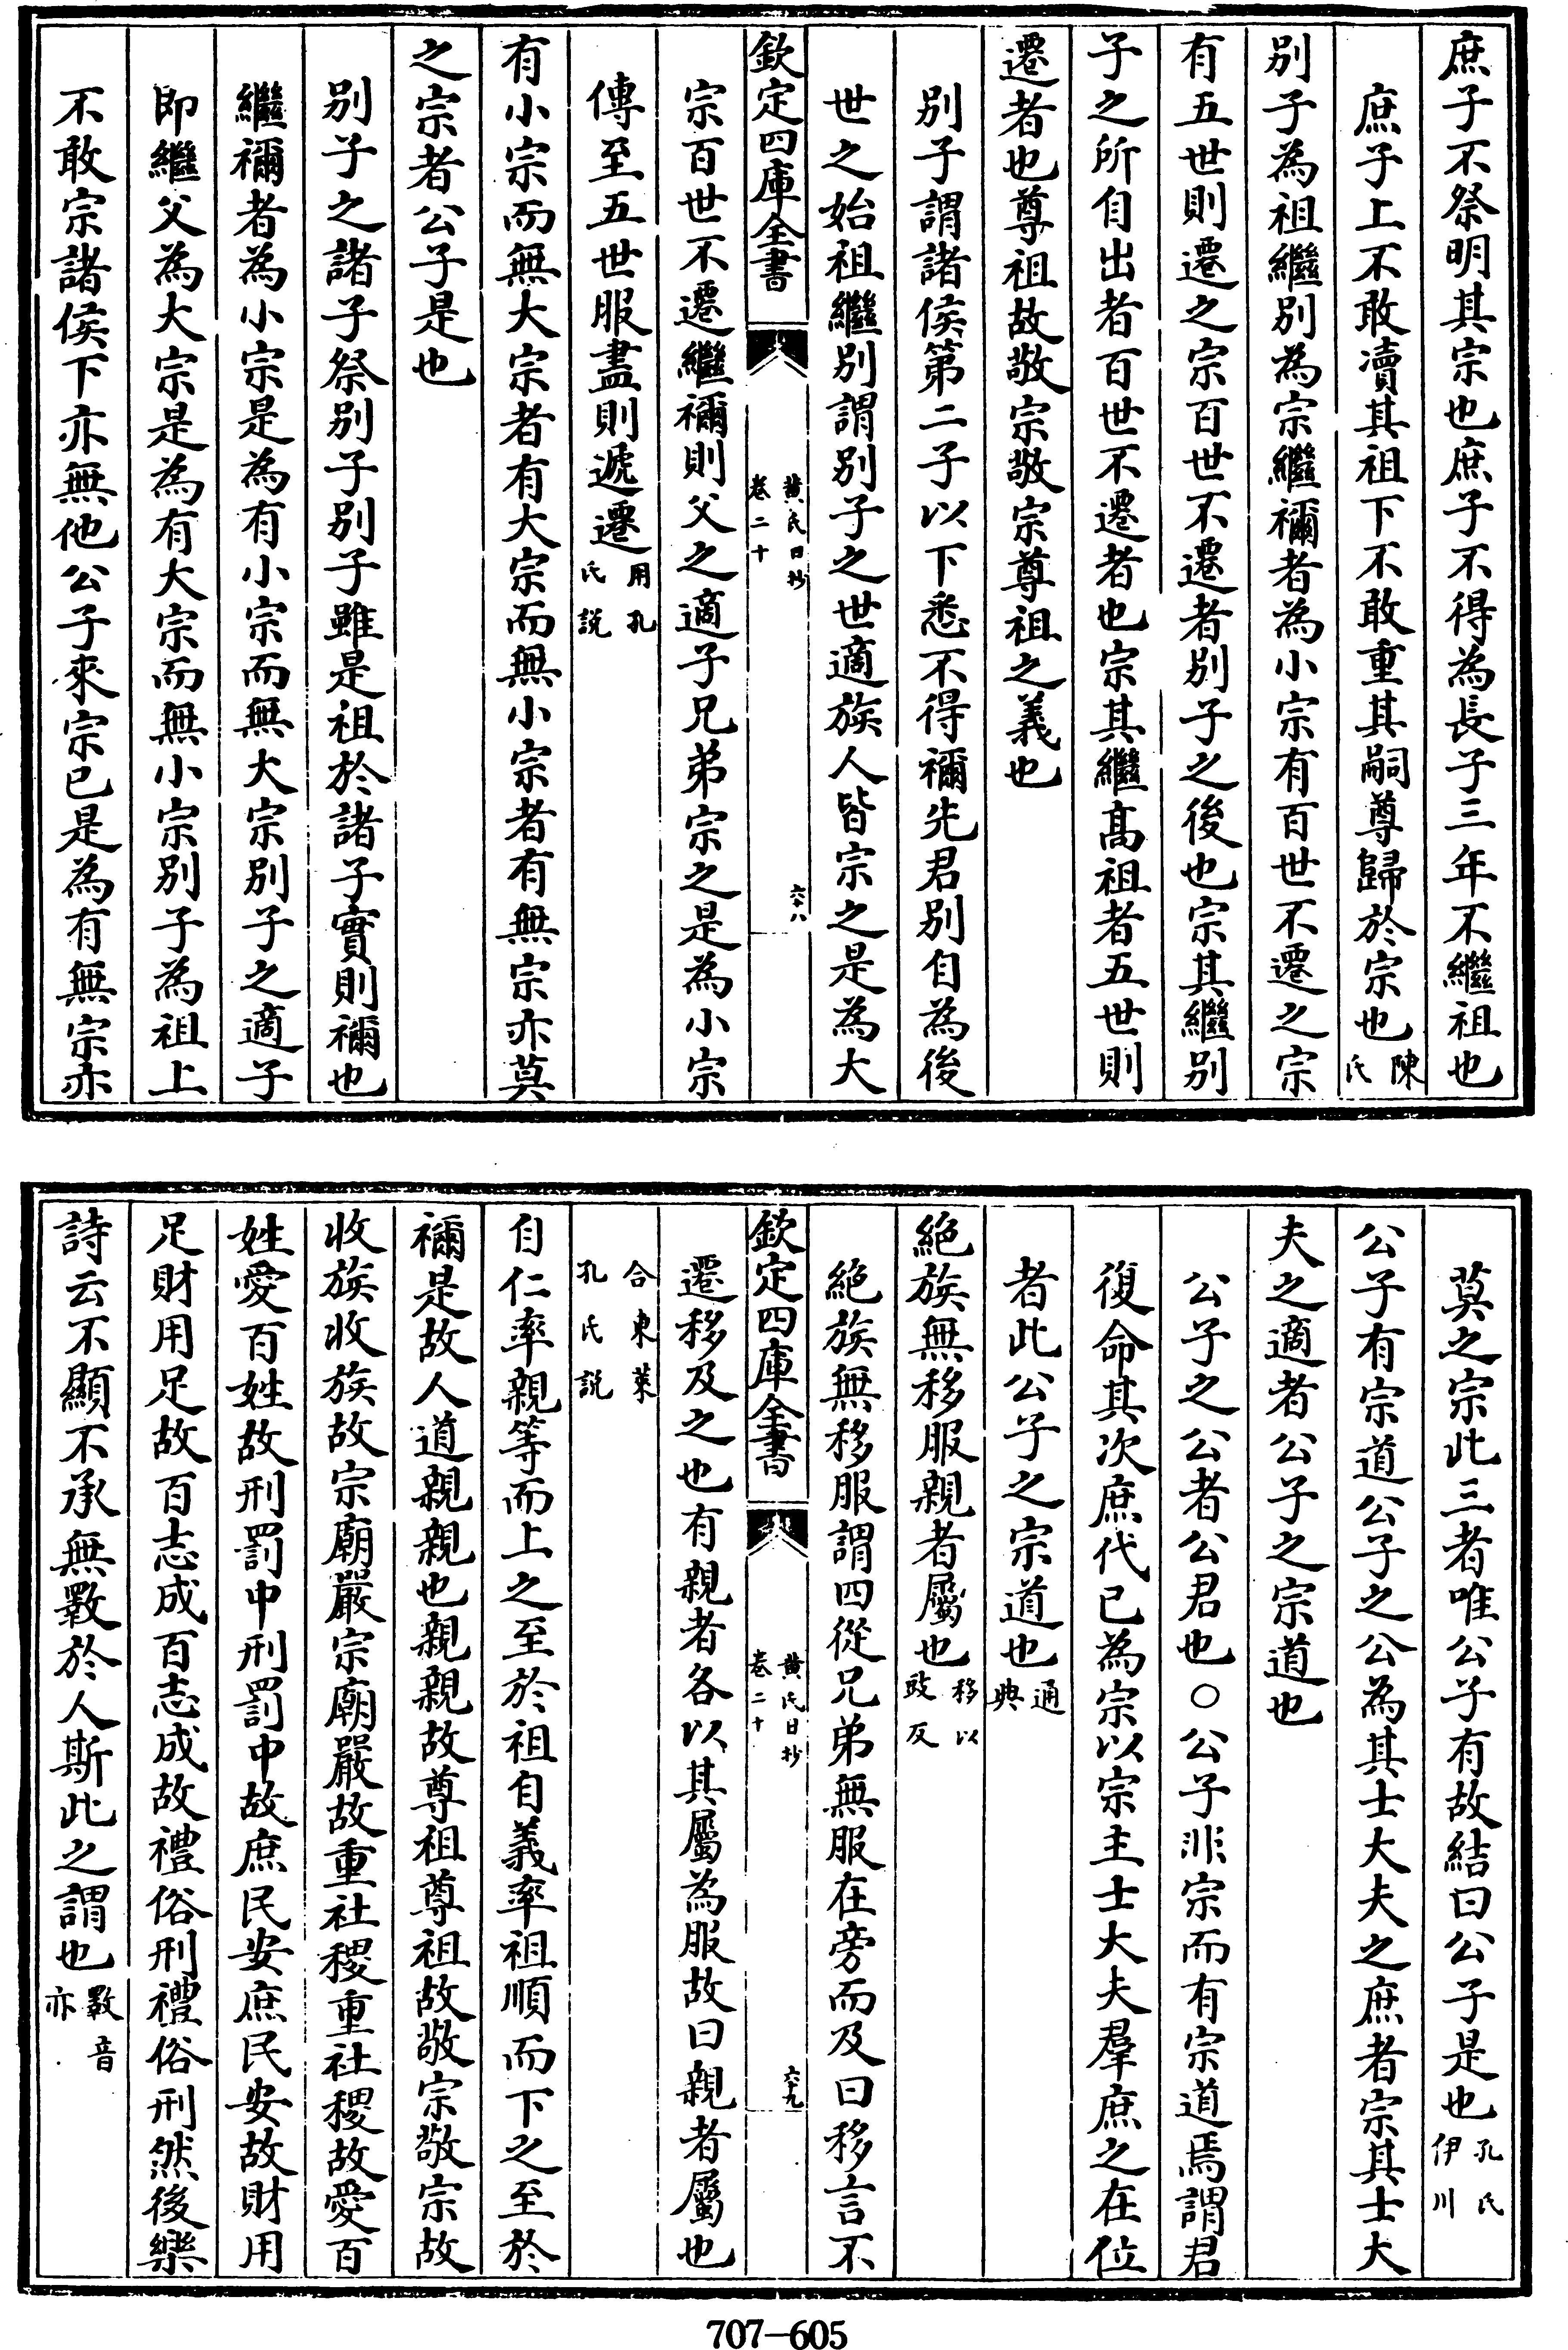 庶子不祭明其宗也庶子不得為長子三年不繼祖也
庶子上不敢瀆其祖下不敢重其嗣尊歸於宗也陳氏
别子為祖繼别為宗繼禰者為小宗有百世不遷之宗
有五世則遷之宗百世不遷者别子之後也宗其繼别
子之所自出者百世不遷者也宗其繼髙祖者五世則
遷者也尊祖故敬宗敬宗尊祖之義也
别子謂諸侯第二子以下悉不得禰先君别自為後
世之始祖繼别謂别子之世適族人皆宗之是為大
欽定四庫全書
黃氏日抄
卷二十
六十八
宗百世不遷繼禰則父之適子兄弟宗之是為小宗
傳至五世服盡則遞遷用孔氏説
有小宗而無大宗者有大宗而無小宗者有無宗亦莫
之宗者公子是也
别子之諸子祭别子别子雖是祖於諸子實則禰也
繼禰者為小宗是為有小宗而無大宗别子之適子
即繼父為大宗是為有大宗而無小宗别子為祖上
不敢宗諸侯下亦無他公子來宗已是為有無宗亦
莫之宗此三者唯公子有故結曰公子是也孔氏伊川
公子有宗道公子之公為其士大夫之庶者宗其士大
夫之適者公子之宗道也
公子之公者公君也○公子非宗而有宗道焉謂君
復命其次庶代已為宗以宗主士大夫羣庶之在位
者此公子之宗道也通典
絕族無移服親者屬也移以豉反
絕族無移服謂四從兄弟無服在旁而及曰移言不
欽定四庫全書
黃氏日抄
卷二十
六十九
遷移及之也有親者各以其屬為服故曰親者屬也
合東萊孔氏説
自仁率親等而上之至於祖自義率祖順而下之至於
禰是故人道親親也親親故尊祖尊祖故敬宗敬宗故
收族收族故宗廟嚴宗廟嚴故重社稷重社稷故愛百
姓愛百姓故刑罰中刑罰中故庶民安庶民安故財用
足財用足故百志成百志成故禮俗刑禮俗刑然後樂
詩云不顯不承無斁於人斯此之謂也斁音亦
707-605